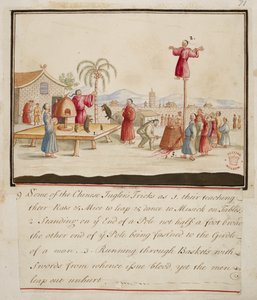 2.
9 Some of the Chinese Juglers Tricks as 1. their teaching
their Rats & Mice to leap & dance to Musick on Tables
2. Standing on yͤ End of a Pole not half a foot broad
the other end of yͤ Pole being fastned to the Girdle
of a man. 3. Running through Baskets with
Swords from whence issue blood, yet the men
leap out unhurt.